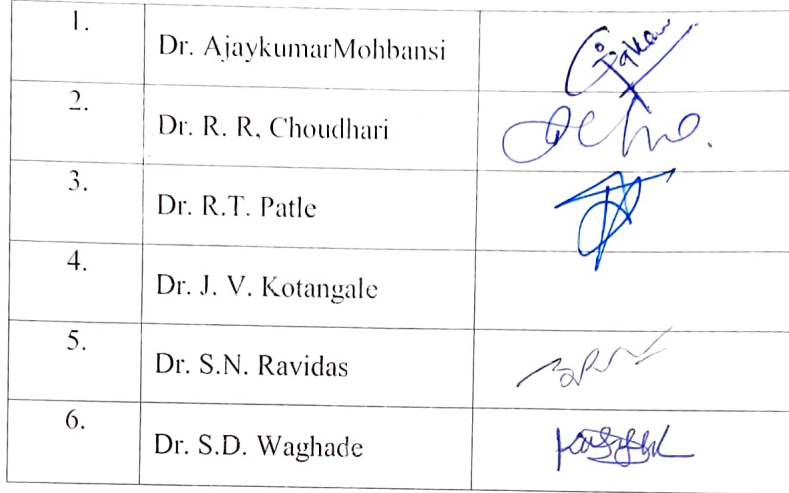 1. Dr. AjaykumarMohbansi
2. Dr. R. R, Choudhari
3. Dr. R.T. Patle
4. Dr. J. V. Kotangale
5. Dr. S.N. Ravidas
6. Dr. S.D. Waghade